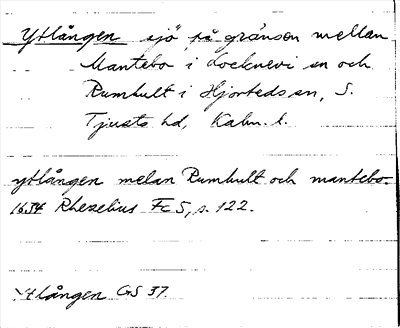 Ytlången sjö på gränsen mellan
Mantebo i Locknevi sn och
Rumhult i Hjorteds sn, S.
Tjusts hd, Kalm. l.
ytlången melan Rumhult och mantebo.
1634 Rhezelius Fc 5, s. 122.
Ytlången GS 37.